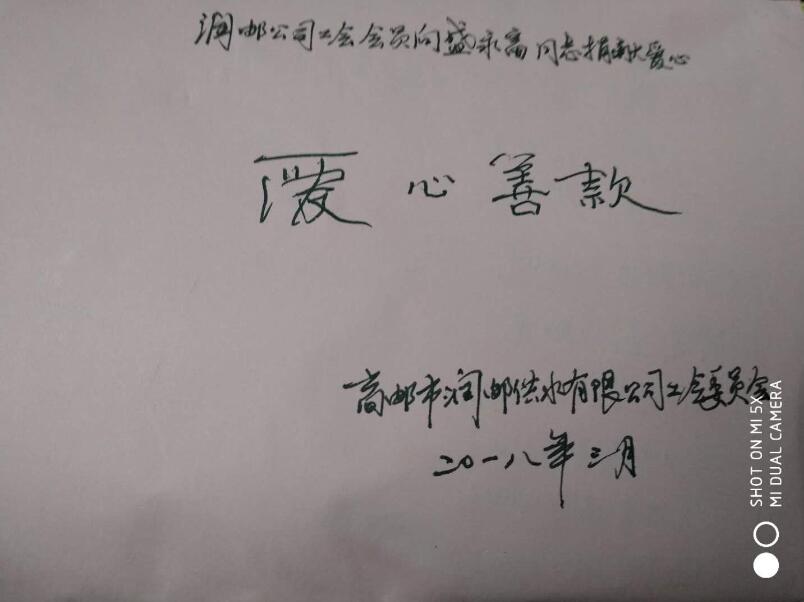 润邮公司工会会员向盛永高同志捐献爱心
爱心善款
高邮市润邮供水有限公司工会委员会
二〇一八年三月
SHOT ON MI 5X
MI DUAL CAMERA